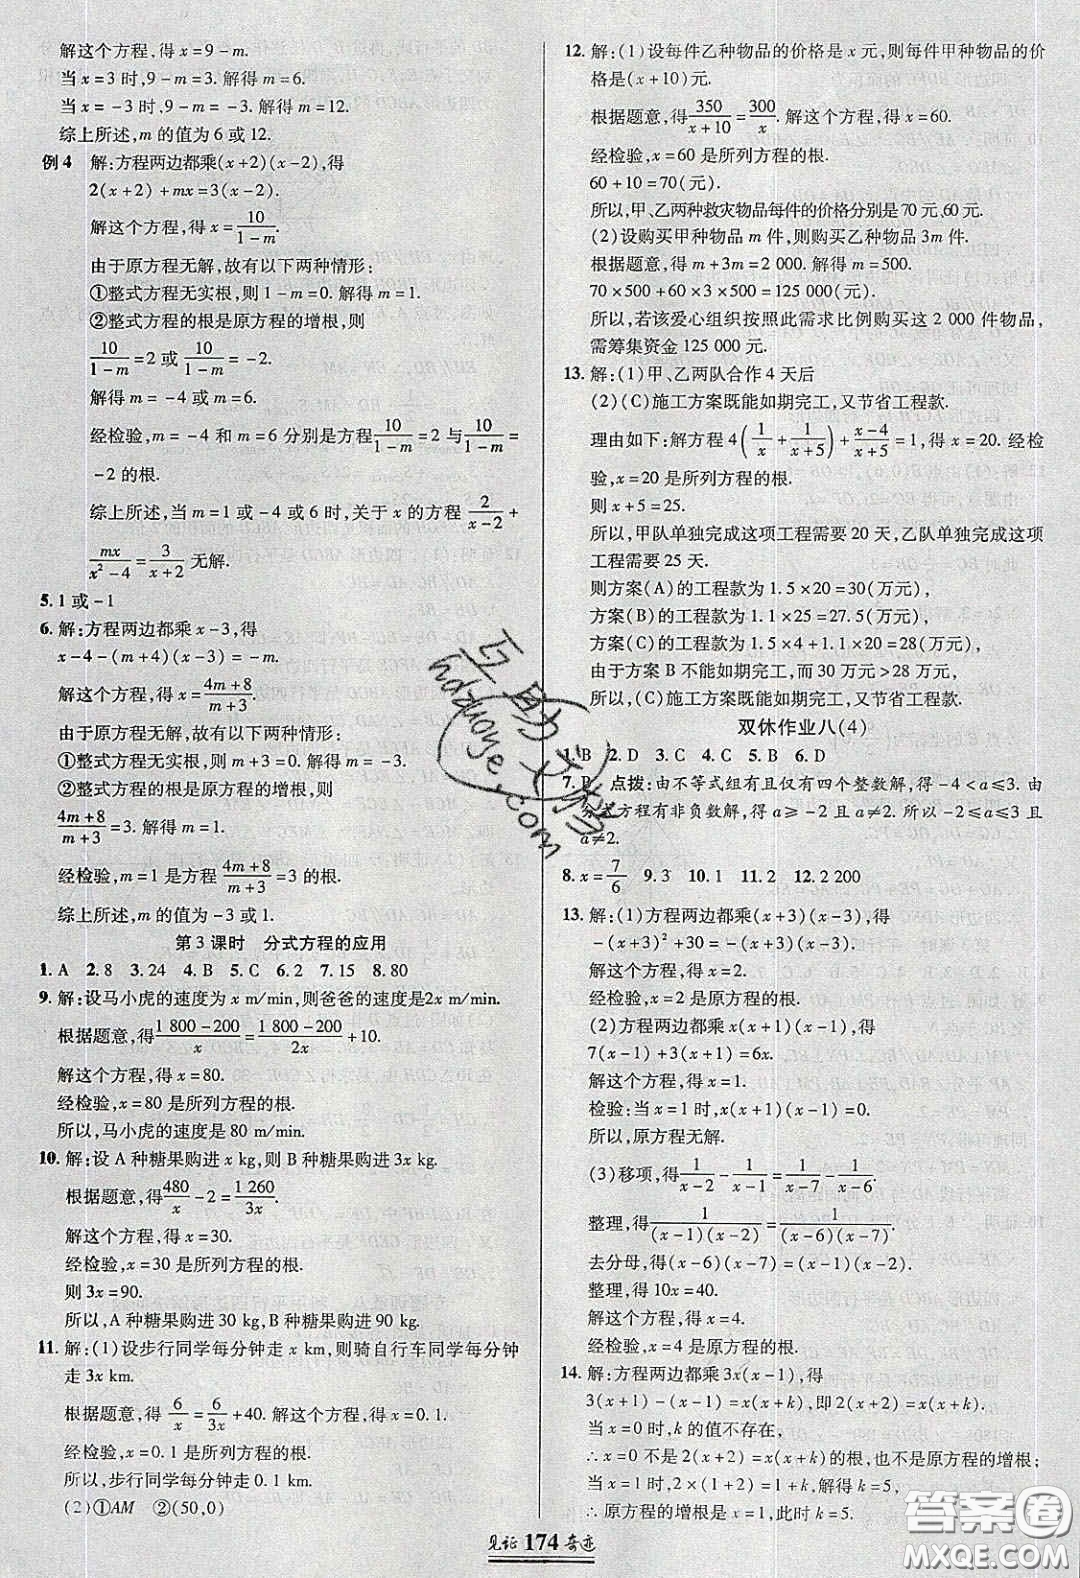 解这个方程,得 x=9-m.
当 x=3 时,9-m=3. 解得 m=6.
当 x=-3 时,9-m=-3. 解得 m=12.
综上所述,m 的值为 6 或 12.
例 4 解:方程两边都乘(x+2)(x-2),得
2(x+2)+mx=3(x-2).
解这个方程,得 x=10/(1-m).
由于原方程无解,故有以下两种情形:
①整式方程无实根,则 1-m=0. 解得 m=1.
②整式方程的根是原方程的增根,则
10/(1-m)=2 或 10/(1-m)=-2.
解得 m=-4 或 m=6.
经检验,m=-4 和 m=6 分别是方程10/(1-m)=2 与10/(1-m)=
-2 的根.
综上所述,当 m=1 或-4 或 6 时,关于 x 的方程 2/(x-2)+
mx/(x²-4)=3/(x+2)无解.
5. 1 或-1
6. 解:方程两边都乘 x-3,得
x-4-(m+4)(x-3)=-m.
解这个方程,得 x=(4m+8)/(m+3).
由于原方程无解,故有以下两种情形:
①整式方程无实根,则 m+3=0. 解得 m=-3.
②整式方程的根是原方程的增根,则
(4m+8)/(m+3)=3. 解得 m=1.
经检验,m=1 是方程(4m+8)/(m+3)=3 的根.
综上所述,m 的值为-3 或 1.
第 3 课时 分式方程的应用
1. A 2. 8 3. 24 4. B 5. C 6. 2 7. 15 8. 80
9. 解:设马小虎的速度为 x m/min,则爸爸的速度是2x m/min.
根据题意,得(1 800-200)/x=(1 800-200)/2x+10.
解这个方程,得 x=80.
经检验,x=80 是所列方程的根.
所以,马小虎的速度是 80 m/min.
10. 解:设 A 种糖果购进 x kg,则 B 种糖果购进 3x kg.
根据题意,得480/x-2=1 260/3x.
解这个方程,得 x=30.
经检验,x=30 是所列方程的根.
则 3x=90.
所以,A 种糖果购进 30 kg,B 种糖果购进 90 kg.
11. 解:(1)设步行同学每分钟走 x km,则骑自行车同学每分钟
走 3x km.
根据题意,得 6/x=6/3x+40. 解这个方程,得 x=0.1.
经检验,x=0.1 是所列方程的根.
所以,步行同学每分钟走 0.1 km.
(2)①AM ②(50,0)
12. 解:(1)设每件乙种物品的价格是 x 元,则每件甲种物品的价
格是(x+10)元.
根据题意,得350/(x+10)=300/x. 解这个方程,得 x=60.
经检验,x=60 是所列方程的根.
60+10=70(元).
所以,甲、乙两种救灾物品每件的价格分别是 70 元、60 元.
(2)设购买甲种物品 m 件,则购买乙种物品 3m 件.
根据题意,得 m+3m=2 000. 解得 m=500.
70×500+60×3×500=125 000(元).
所以,若该爱心组织按照此需求比例购买这 2 000 件物品,
需筹集资金 125 000 元.
13. 解:(1)甲、乙两队合作 4 天后
(2)(C)施工方案既能如期完工,又节省工程款.
理由如下:解方程 4(1/x+1/(x+5))+(x-4)/(x+5)=1,得 x=20. 经检
验,x=20 是所列方程的根.
则 x+5=25.
所以,甲队单独完成这项工程需要 20 天,乙队单独完成这项
工程需要 25 天.
则方案(A)的工程款为 1.5×20=30(万元),
方案(B)的工程款为 1.1×25=27.5(万元),
方案(C)的工程款为 1.5×4+1.1×20=28(万元),
由于方案 B 不能如期完工,而 30 万元>28 万元,
所以,(C)施工方案既能如期完工,又节省工程款.
双休作业八(4)
1. B 2. D 3. C 4. C 5. B 6. D
7. B 点拨:由不等式组有且仅有四个整数解,得-4<a≤3. 由
分式方程有非负数解,得 a≥-2 且 a≠2. 所以-2≤a≤3 且
a≠2.
8. x=7/6 9. 3 10. 1 11. 2 12. 2 200
13. 解:(1)方程两边都乘(x+3)(x-3),得
-(x+3)²+30=(x+3)(3-x).
解这个方程,得 x=2.
经检验,x=2 是原方程的根.
(2)方程两边都乘 x(x+1)(x-1),得
7(x-1)+3(x+1)=6x.
解这个方程,得 x=1.
检验:当 x=1 时,x(x+1)(x-1)=0.
所以,原方程无解.
(3)移项,得1/(x-2)-1/(x-1)=1/(x-7)-1/(x-6).
整理,得1/((x-1)(x-2))=1/((x-6)(x-7)).
去分母,得(x-6)(x-7)=(x-1)(x-2).
整理,得 10x=40.
解这个方程,得 x=4.
经检验,x=4 是原方程的根.
14. 解:方程两边都乘 3x(x-1),得
3(x+1)-(x-1)=x(x+k),即 2(x+2)=x(x+k).
当 x=0 时,k 的值不存在,
∴x=0 不是 2(x+2)=x(x+k)的根,也不是原方程的增根;
当 x=1 时,2×(1+2)=1×(1+k),解得 k=5.
∴原方程的增根是 x=1,此时 k=5.
见证 174 奇迹
互助文档
hdzuoye.com
答案圈
MXQE.COM